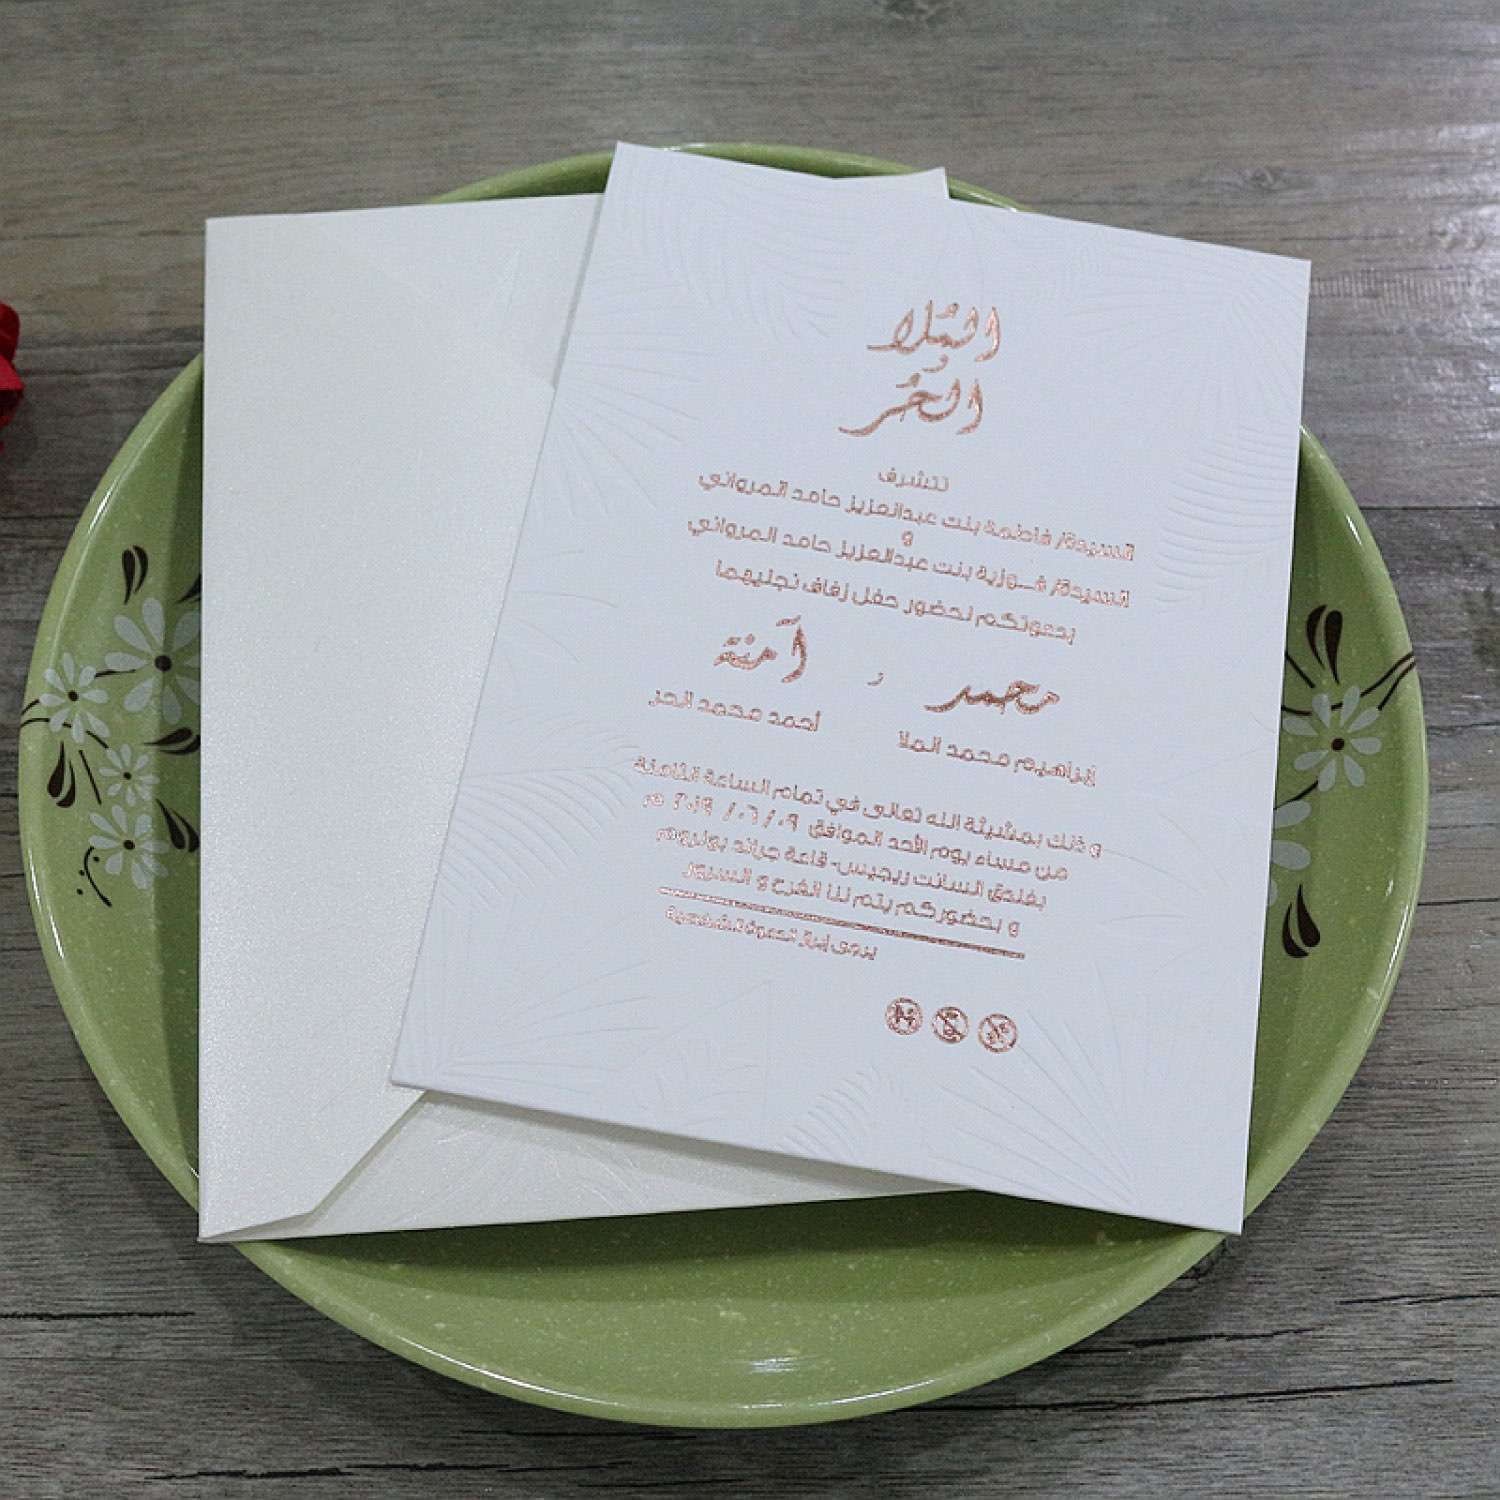 المُلا
و
الحُر
تتشرف
السيدة/ فاطمة بنت عبدالعزيز حامد المرواني
و
السيدة/ فـوزية بنت عبدالعزيز حامد المرواني
بدعوتكم لحضور حفل زفاف نجليهما
محمد و آمنة
إبراهيم محمد الملا أحمد محمد الحر
و ذلك بمشيئة الله تعالى في تمام الساعة الثامنة
من مساء يوم الأحد الموافق ٠٩ /٠٦ / ٢٠١٩ م
بفندق السانت ريجيس- قاعة جراند بولروم
و بحضوركم يتم لنا الفرح و السرور
يرجى إبراز الدعوة الشخصية